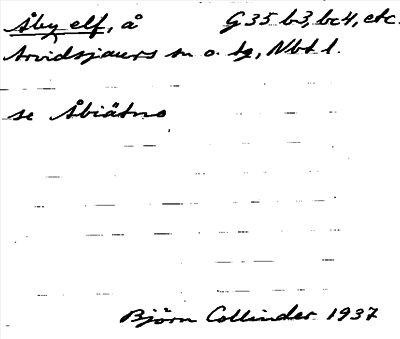 Åby elf, å G 35 b3, bc4, etc.
Arvidsjaurs sn o. tg, Nbt l.
se Åbiätno
Björn Collinder 1937